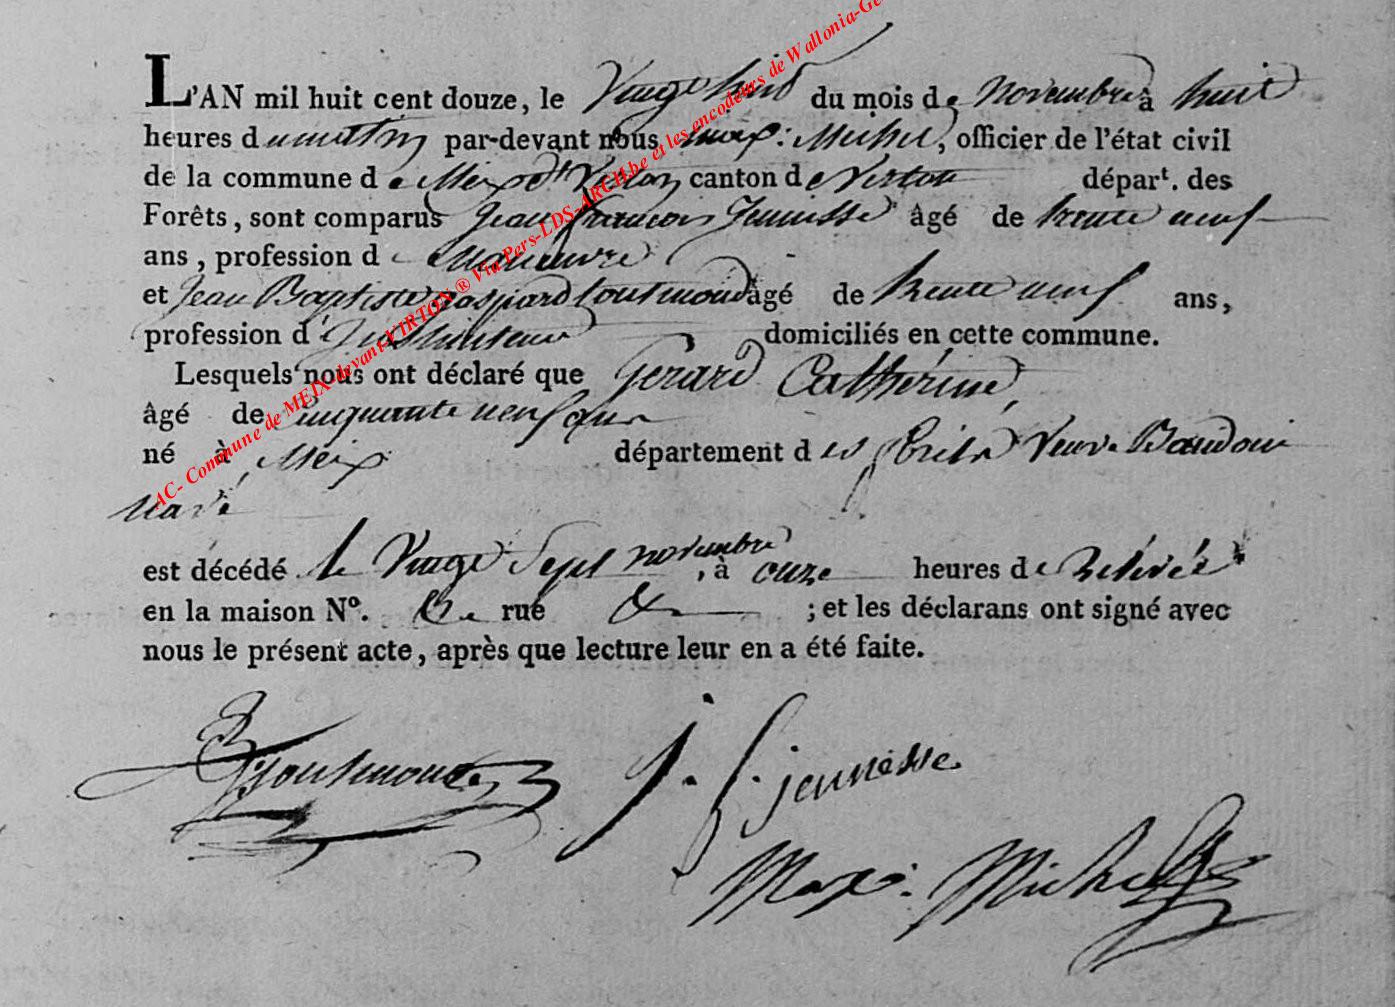 L'AN mil huit cent douze, le Vingt huit du mois de novembre à huit
heures du matin par-devant nous max: Michel, officier de l'état civil
de la commune de Meix dt Virton canton de Virton départ. des
Forêts, sont comparus Jean françois Jeunesse âgé de trente neuf
ans, profession de Manœuvre
et Jean Baptiste gaspard toutmond âgé de trente neuf ans,
profession d'Instituteur domiciliés en cette commune.
Lesquels nous ont déclaré que Gerard Catherine,
âgé de Cinquante neuf ans
né à Meix département des forêts Veuve Baudoin
est décédé le Vingt Sept novembre, à onze heures de Relevée
en la maison No. rue ; et les déclarans ont signé avec
nous le présent acte, après que lecture leur en a été faite.
j. f. jeunesse
Max: Michel
AC- Commune de MEIX-devant-VIRTON ® Via Pers-LDS-ARCH.be et les encodeurs de Wallonia-Ge